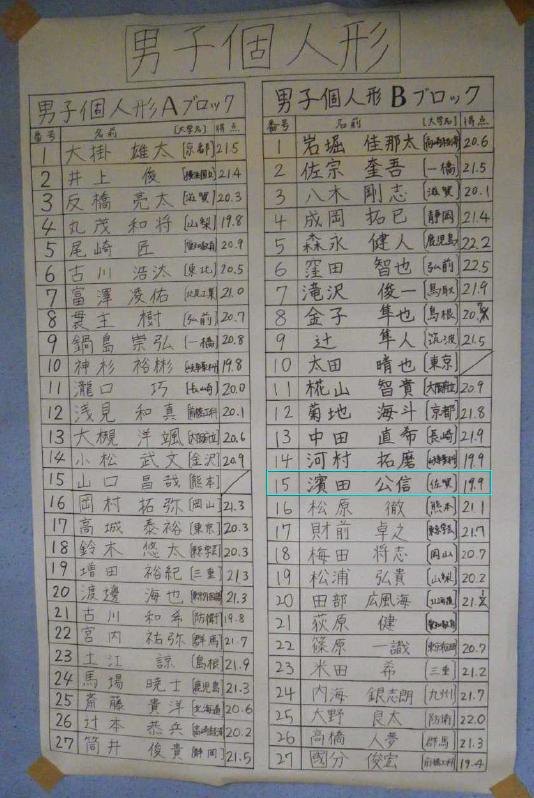 男子個人形
男子個人形Aブロック
番号 名前 [大学名] 得点
1 大掛 雄太 [京都] 21.5
2 井上 俊 21.4
3 反橋 亮太 [滋賀] 20.3
4 丸茂 和将 [山梨] 19.8
5 尾崎 匠 [愛知教育] 20.9
6 古川 浩汰 [東北] 20.5
7 富澤 凌佑 [北見工業] 21.0
8 貫主 樹 [弘前] 20.7
9 鍋島 崇弘 [一橋] 20.8
10 神杉 裕彬 19.8
11 瀧口 巧 [長崎] 20.0
12 浅見 和真 [前橋工科] 20.1
13 大槻 洋颯 [大阪府立] 20.6
14 小松 武文 [金沢] 20.9
15 山口 昌哉 [熊本]
16 岡村 拓弥 [岡山] 21.3
17 高城 泰裕 [東京] 20.3
18 鈴木 悠太 [東京学芸] 20.3
19 増田 裕紀 [三重] 21.3
20 渡邊 海也 [東京外国語] 21.3
21 古川 和弥 [防衛] 19.8
22 宮内 祐弥 [群馬] 21.7
23 土江 諒 [島根] 21.9
24 馬場 暁士 [鹿児島] 21.3
25 斎藤 貴洋 [北海道] 20.6
26 辻本 恭兵 [高崎経済] 20.2
27 筒井 俊貴 [静岡] 21.5
男子個人形Bブロック
番号 名前 [大学名] 得点
1 岩堀 佳那太 [高崎経済] 20.6
2 佐宗 奎吾 [一橋] 21.5
3 八木 剛志 [滋賀] 20.1
4 成岡 拓巳 [静岡] 21.4
5 森永 健人 [鹿児島] 22.2
6 窪田 智也 [弘前] 22.5
7 滝沢 俊一 [鳥取] 21.9
8 金子 隼也 [島根]
9 辻 隼人 [筑波] 21.5
10 太田 晴也 [東京]
11 椛山 智貴 [大阪府立] 20.9
12 菊地 海斗 [京都] 21.8
13 中田 直希 [長崎] 21.9
14 河村 拓磨 19.9
15 濱田 公信 [佐賀] 19.9
16 松原 徹 [熊本] 21.1
17 財前 卓之 [東京学芸] 21.7
18 梅田 将志 [岡山] 20.7
19 松浦 弘貴 [山梨] 20.2
20 田部 広風海 [北海道]
21 荻原 健 [愛知教育]
22 篠原 一識 20.7
23 米田 希 [三重] 21.2
24 内海 銀志朗 [九州] 21.7
25 大野 良太 [防衛] 22.0
26 高橋 人夢 [群馬] 21.3
27 國分 俊宏 [前橋工科] 19.4